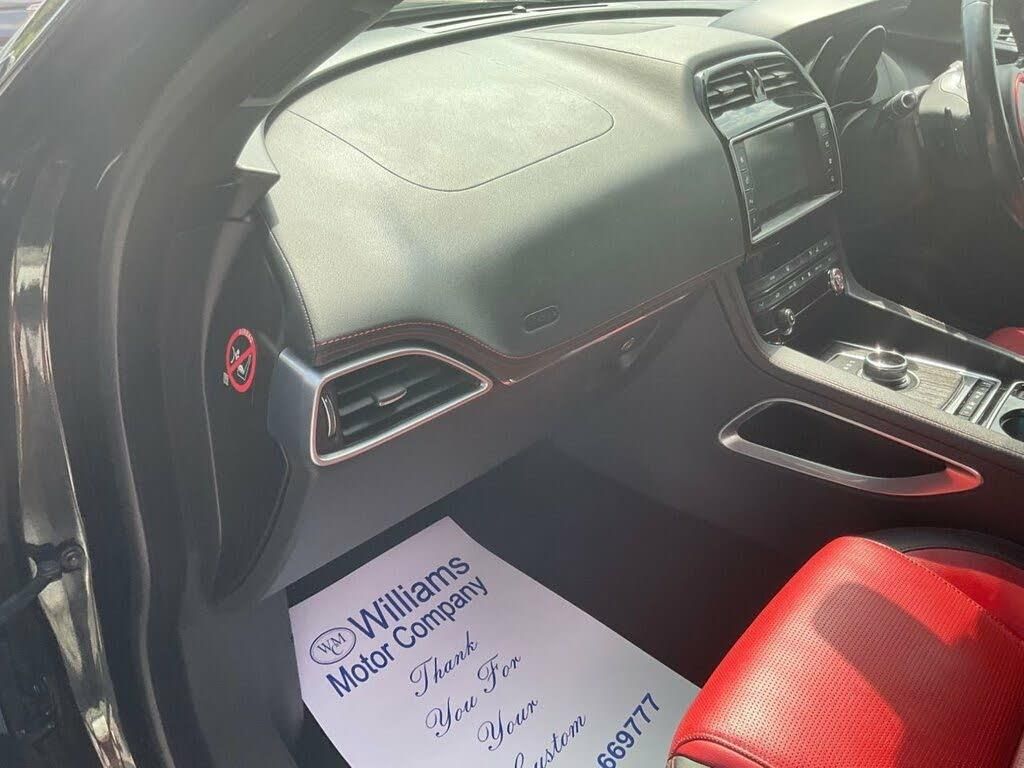 WMC
Williams
Motor Company
Thank
You For
Your
Custom
669777